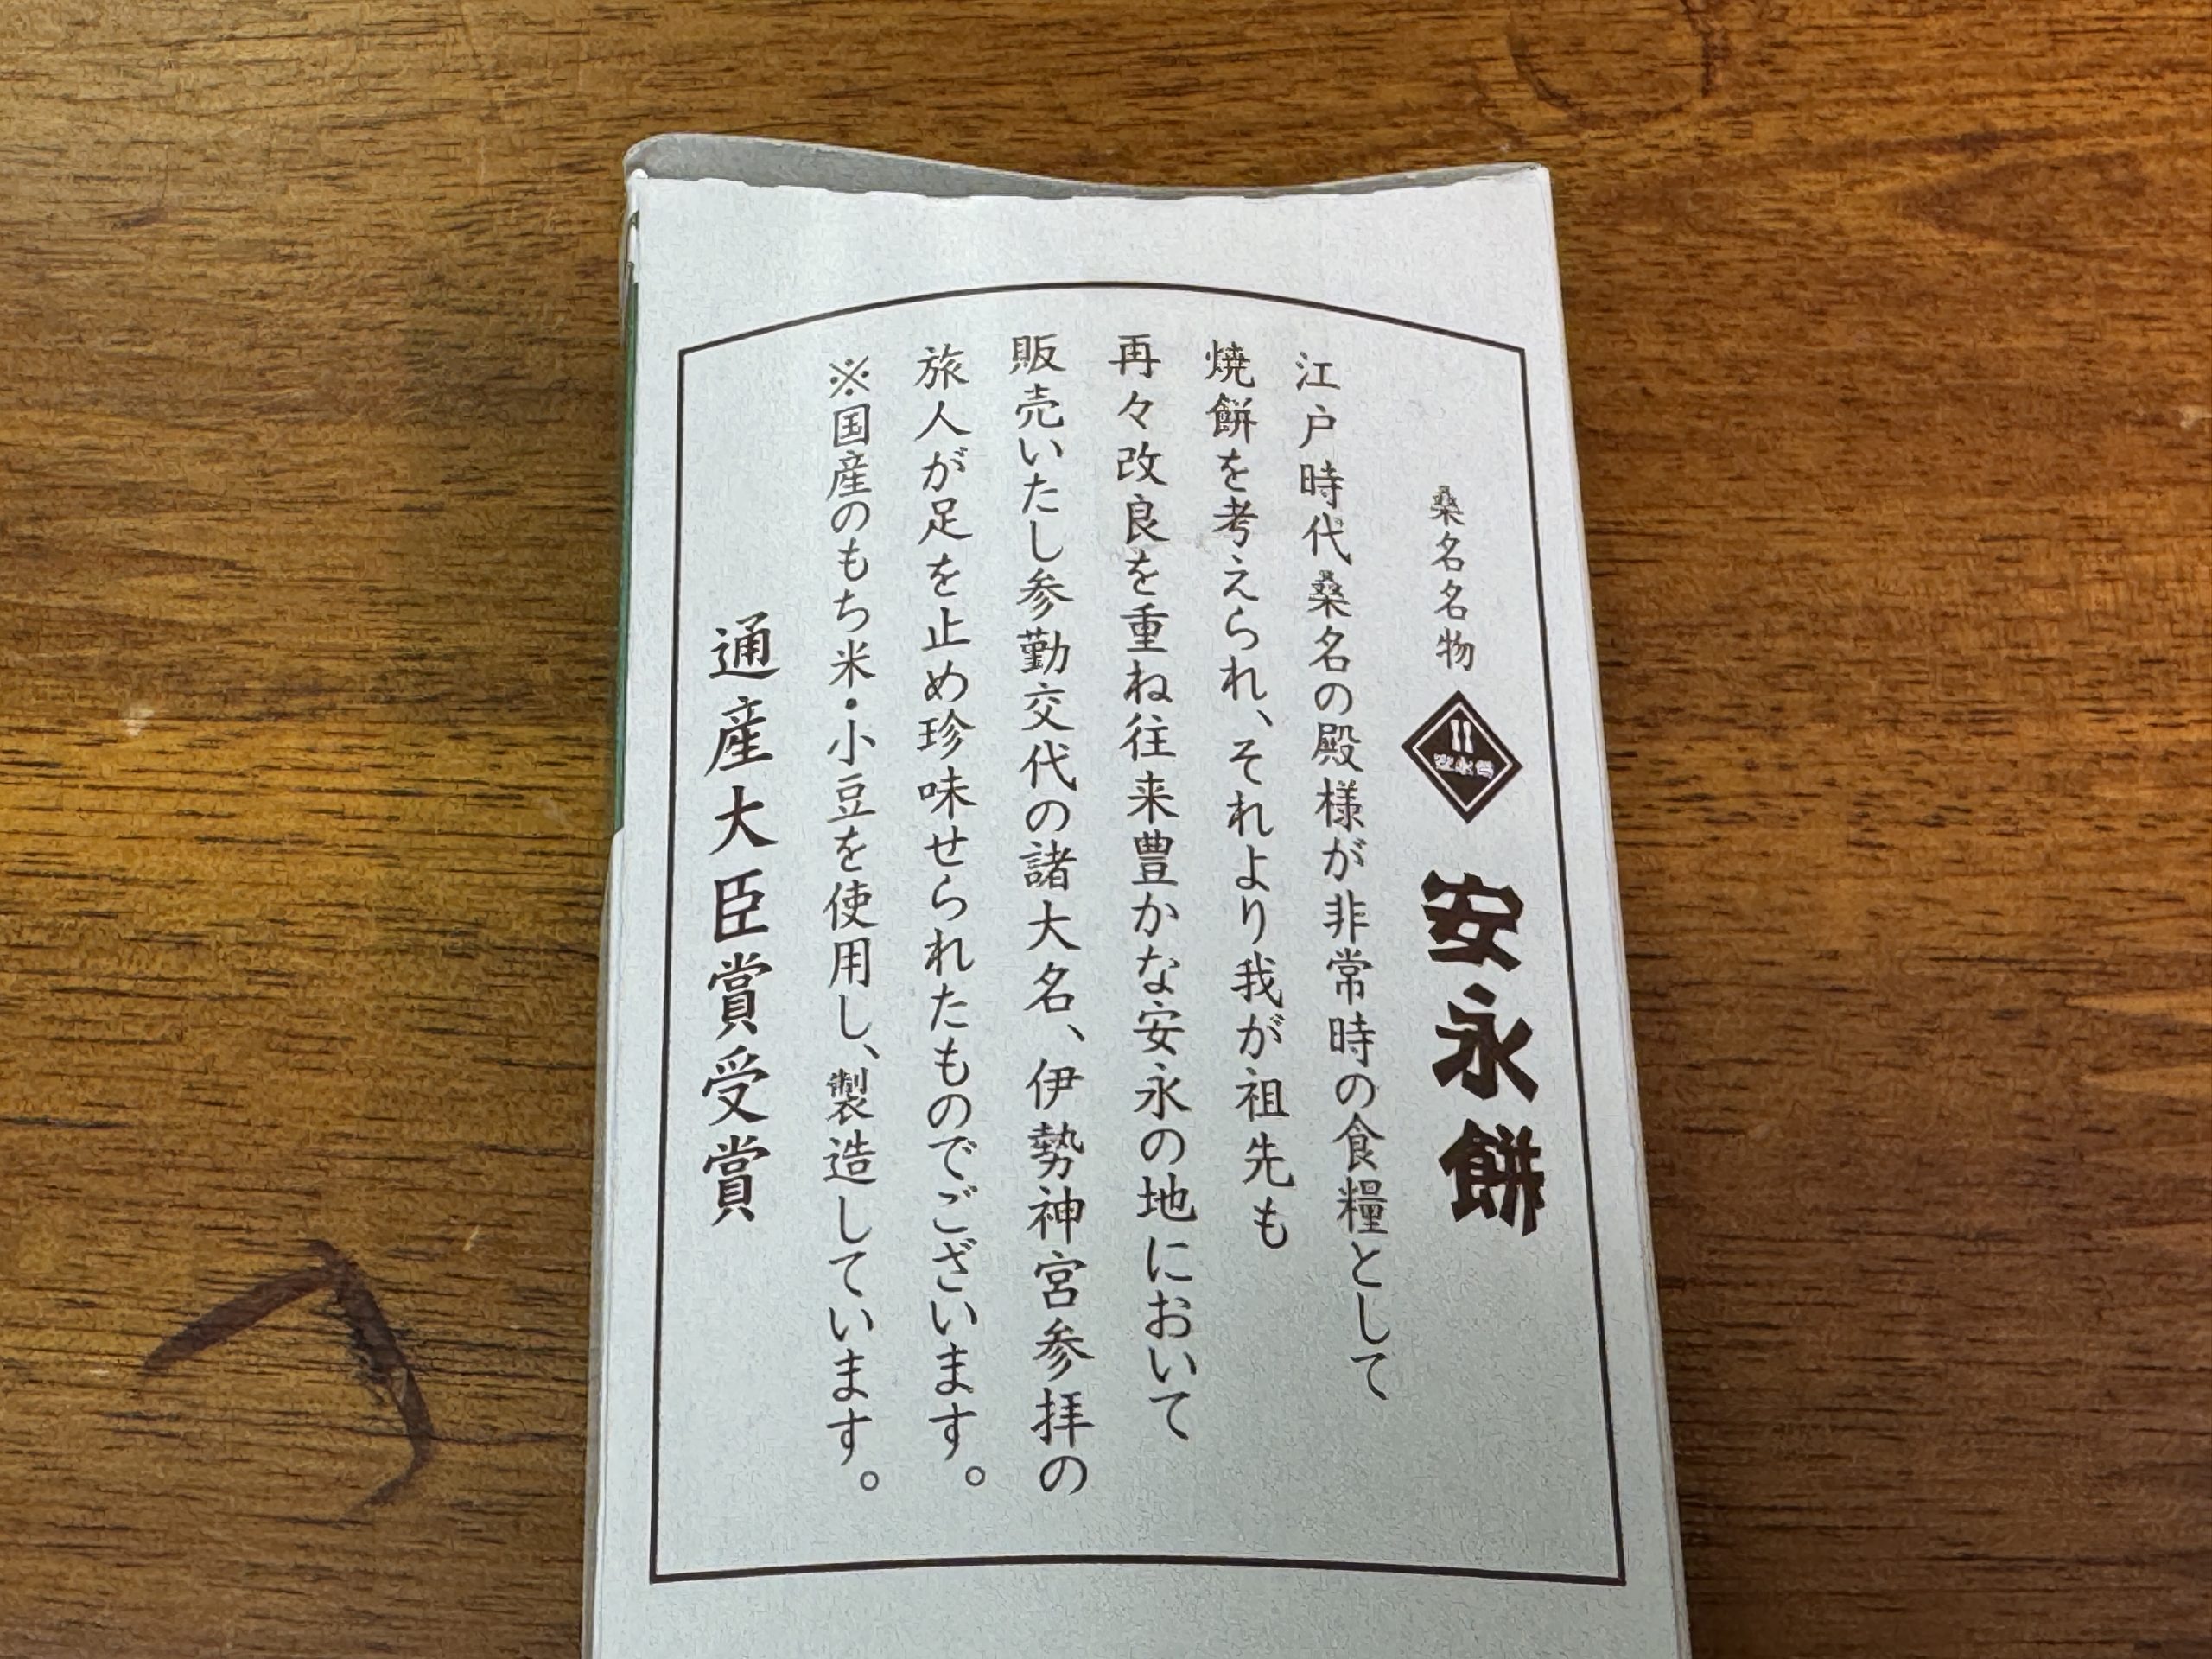 桑名名物 安永餅
江戸時代桑名の殿様が非常時の食糧として
焼餅を考えられ、それより我が祖先も
再々改良を重ね往来豊かな安永の地において
販売いたし参勤交代の諸大名、伊勢神宮参拝の
旅人が足を止め珍味せられたものでございます。
※国産のもち米・小豆を使用し、製造しています。
通産大臣賞受賞